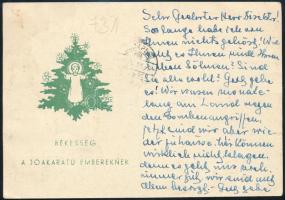 731
BÉKESSÉG
A JÓAKARATÚ EMBEREKNEK
Sehr Geehrter Herr Direktor!
So lange habe ich von
Ihnen nichts gehört! Wie
geht es Ihnen und Ihren
lieben Söhnen? Sind
Sie alle wohl? Gott gebe
es! Wir waren monate-
lang am Land wegen
den Bombenangriffen,
jetzt sind wir aber wie-
der zuhause. Wir können
wirklich nicht klagen,
denn es geht uns noch
immer gut, wir sind mit
allem besorgt. Gott gebe